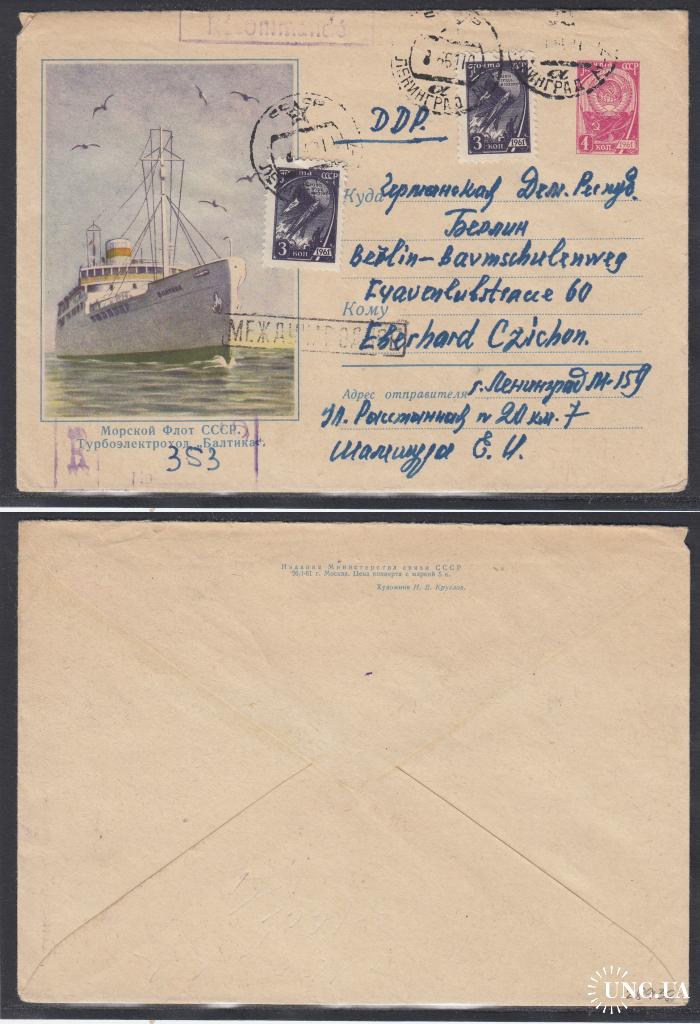 Recommandé
ЛЕНИНГРАД
ЛЕНИНГРАД
ПОЧТА СССР
3 КОП 1961
ПОЧТА СССР
3 КОП 1961
СССР
4 КОП. 1961
DDP.
Куда Германская Дем. Респуб.
Берлин
Berlin-Baumschulenweg
Кому
60
Eberhard Czichon.
МЕЖДУНАРОДНОЕ
Адрес отправителя г. Ленинград М-159
20 кв. 7
Е. И.
БАЛТИКА
Морской Флот СССР.
Турбоэлектроход „Балтика“.
R
No
353
Издание Министерства связи СССР
26/I-61 г. Москва. Цена конверта с маркой 5 к.
Художник Н. В. Круглов.
UNC.UA